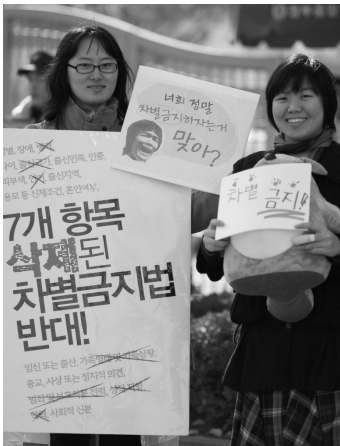 너희 정말
차별금지하자는거
맞아?
차별 금지!!
성별, 장애, 병력,
나이, 출신국가, 출신민족, 인종,
피부색, 언어, 출신지역,
용모 등 신체조건, 혼인여부,
7개 항목
삭제된
차별금지법
반대!
임신 또는 출산, 가족형태 및 가족상황,
종교, 사상 또는 정치적 의견,
범죄 및 보호처분 전력, 성적지향,
학력, 사회적 신분